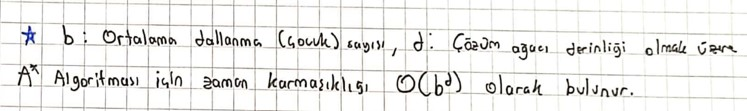 ☆ b: Ortalama dallanma (çocuk) sayısı, d: Çözüm ağacı derinliği olmak üzere
A* Algoritması için zaman karmaşıklığı O(b^d) olarak bulunur.